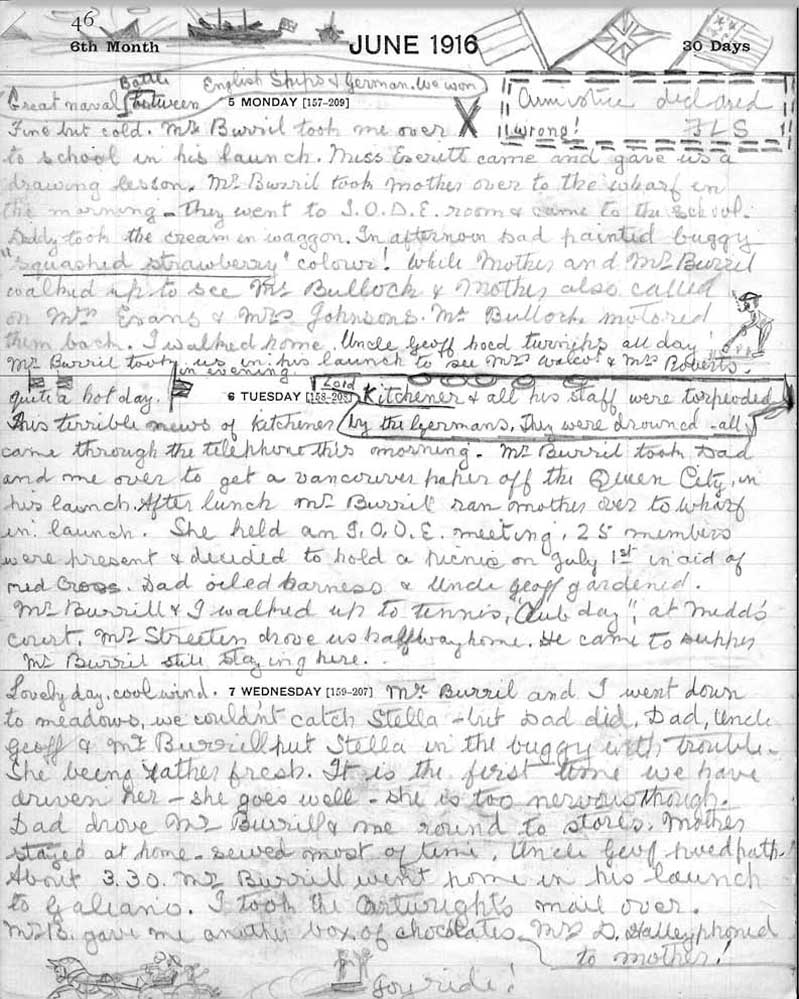 46
6th Month JUNE 1916 30 Days
Great naval Battle between English Ships & German. We won
5 MONDAY [157-209]
Armistice declared
wrong! FLS
Fine but cold. Mr Burril took me over X
to school in his launch. Miss Everitt came and gave us a
drawing lesson. Mr Burril took mother over to the wharf in
the morning - They went to I.O.D.E. room & came to the school.
Daddy took the cream in waggon. In afternoon Dad painted buggy
"squashed strawberry" colour! While Mother and Mr Burril
walked up to see Mrs Bullock & Mother also called
on Mrs Evans & Mrs Johnsons. Mr Bullock motored
them back. I walked home. Uncle Geoff hoed turnips all day
Mr Burril took us in his launch to see Mrs & Mrs Roberts.
in evening.
quite a hot day. 6 TUESDAY [158-208] Lord Kitchener & all his staff were torpedoed
This terrible news of Kitchener (by the Germans. They were drowned - all
came through the telephone this morning. Mr Burril took Dad
and me over to get a Vancouver paper off the Queen City, in
his launch. After lunch Mr Burril ran mother over to wharf
in launch. She held an I.O.D.E. meeting, 25 members
were present & decided to hold a picnic on July 1st in aid of
red Cross. Dad oiled harness & Uncle Geoff gardened.
Mr Burrill & I walked up to tennis, "Club day", at
court. Mr Streeten drove us halfway home. He came to supper
Mr Burril still staying here.
Lovely day, cool wind. 7 WEDNESDAY [159-207] Mr Burril and I went down
to meadows, we couldn't catch Stella - but Dad did. Dad, Uncle
Geoff & Mr Burrill put Stella in the buggy with trouble -
She being rather fresh. It is the first time we have
driven her - she goes well - she is too nervous though.
Dad drove Mr Burrill & me round to stores. Mother
stayed at home - sewed most of time. Uncle Geoff hoed path.
About 3.30. Mr Burrill went home in his launch
to Galiano. I took the Cartwright's mail over.
Mr B. gave me another box of chocolates. Mrs D. phoned
to mother!
Joy ride!